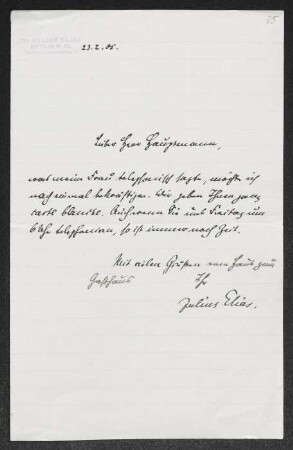 25
Dr. JULIUS ELIAS
23.2.06.
Lieber Herr Hauptmann,
was meine Frau telephonisch sagte, möchte ich
noch einmal bekräftigen. Wir geben Ihnen ganz
carte blanche. Auch wenn Sie uns Freitag um
6 Uhr telephonieren, so ist immer noch Zeit.
Mit vielen Grüßen von Haus zum
Gasthaus Ihr
Julius Elias.